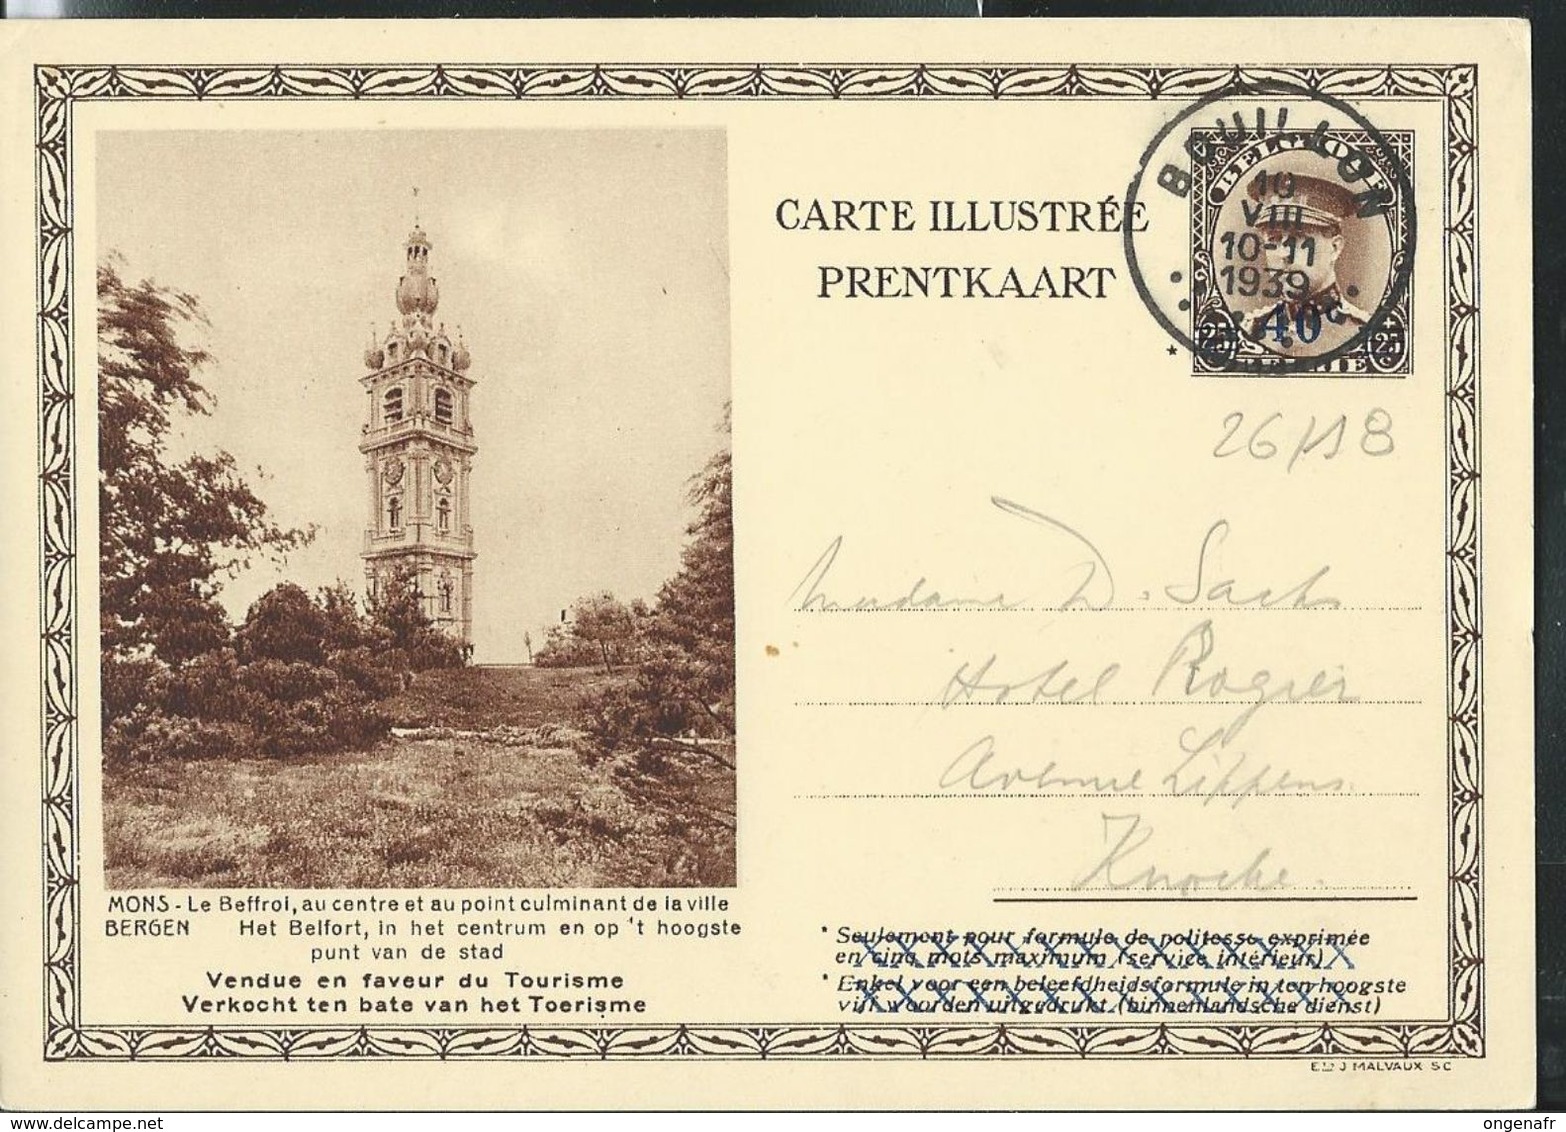 CARTE ILLUSTRÉE
PRENTKAART
BOUILLON
10
VIII
10-11
1939
BELGIQUE
40c
25 25
BELGIE
*
26/18
Madame D. Sachs
Hotel Rogier
Avenue Lippens
Knocke.
MONS - Le Beffroi, au centre et au point culminant de la ville
BERGEN Het Belfort, in het centrum en op 't hoogste
punt van de stad
Vendue en faveur du Tourisme
Verkocht ten bate van het Toerisme
* Seulement pour formule de politesse exprimée
en cinq mots maximum (service intérieur)
* Enkel voor een beleefdheidsformule in ten hoogste
vijf woorden uitgedrukt (binnenlandsche dienst)
XXXXXXXXXXXXXXXXX
XXXXXXXXXXXXXXXXX
Ets J MALVAUX SC
ongenafr